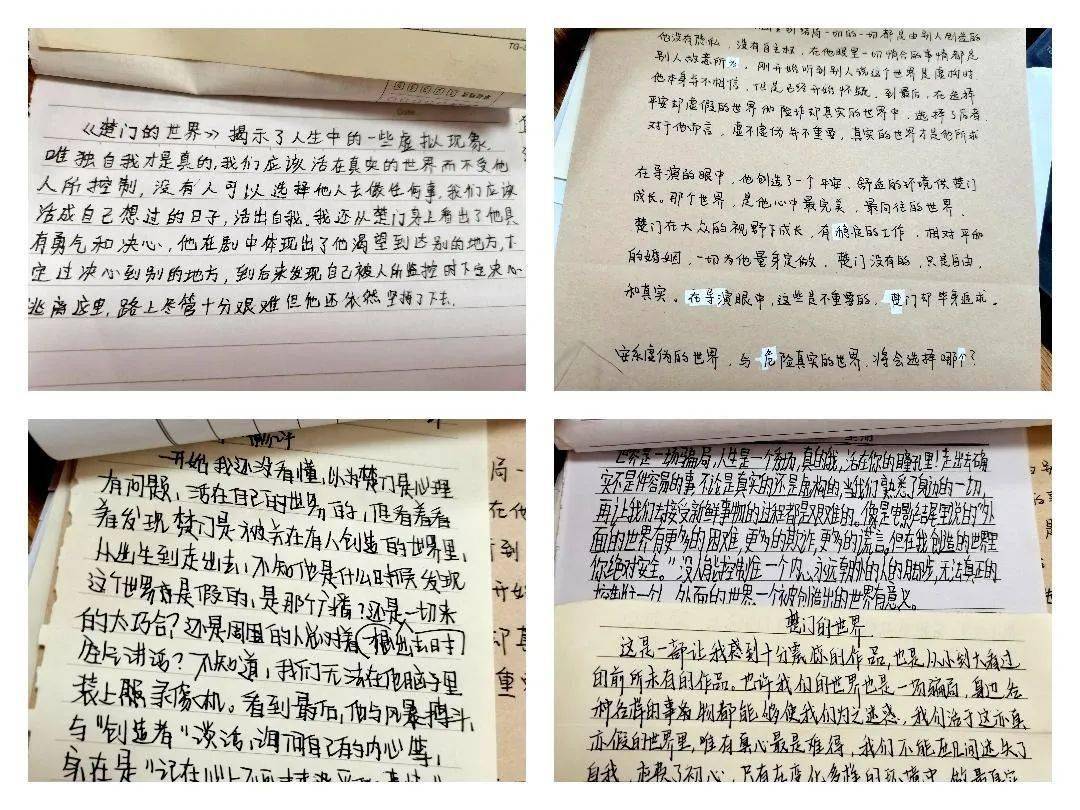 《楚门的世界》揭示了人生中的一些虚拟现象
唯独自我才是真的,我们应该活在真实的世界而不受他
人所控制,没有人可以选择他人去做任何事,我们应该
活成自己想过的日子,活出自我。我还从楚门身上看出了他具
有勇气和决心,他在剧中体现出了他渴望到达别的地方,下
定过决心到别的地方,到后来发现自己被人所监控时下定决心
逃离这里,路上尽管十分艰难但他还依然坚持了下去。
结局一切的一切都是由别人创造的
他没有隐私,没有自主权,在他眼里一切悄合的事情都是
别人故意所为,刚开始听到别人说这个世界是虚构时
他本身并不相信,但是已经开始怀疑。到最后,在选择
平安却虚假的世界和险诈却真实的世界中,选择了后者
对于他而言,虚不虚伪并不重要,真实的世界才是他所求
在导演的眼中,他创造了一个平安,舒适的环境供楚门
成长。那个世界,是他心中最完美,最向往的世界.
楚门在大众的视野下成长,有稳定的工作,相对平和
的婚姻,一切为他量身定做,楚门没有的,只是自由,
和真实。在导演眼中,这些是不重要的,楚门却毕身追求。
安乐虚伪的世界,与危险真实的世界,将会选择哪个?
影评
一开始我还没看懂,以为楚门是心理
有问题,活在自己的世界的,但看着看
着发现楚门是被关在有人创造的世界里,
从出生到走出去,不知他是什么时候发现
这个世界是假的,是那个广播?还是一切来
的太巧合?还是周围的人总对着
讲话?不知道,我们无法在他脑子里
装上服录像机。看到最后,他与风暴搏斗,
与“创造者”谈话,询问自己的内心等,
世界是一场骗局,人生是一个剧场,真的我,活在你的瞳孔里!走出去确
实不是件容易的事,不论是真实的还是虚构的,当我们熟悉了身边的一切,
再让我们去接受新鲜事物的过程都是艰难的。像是电影结尾里说的“外
面的世界有更多的困难,更多的欺诈,更多的谎言。但在我创造的世界里
你绝对安全。”没人能控制住一个内心永远朝外的人的脚步,无法真正的
外面的世界 一个被创造出的世界有意义。
楚门的世界
这是一部让我感到十分震撼的作品,也是从小到大看过
的前所未有的作品。也许我们的世界也是一场骗局,身边各
种各样的事物都能够使我们为之迷惑,我们活于这亦真
亦假的世界里,唯有真心最是难得,我们不能在凡间迷失了
自我,丢换了初心,只有在变化多样的环境中,做最真实